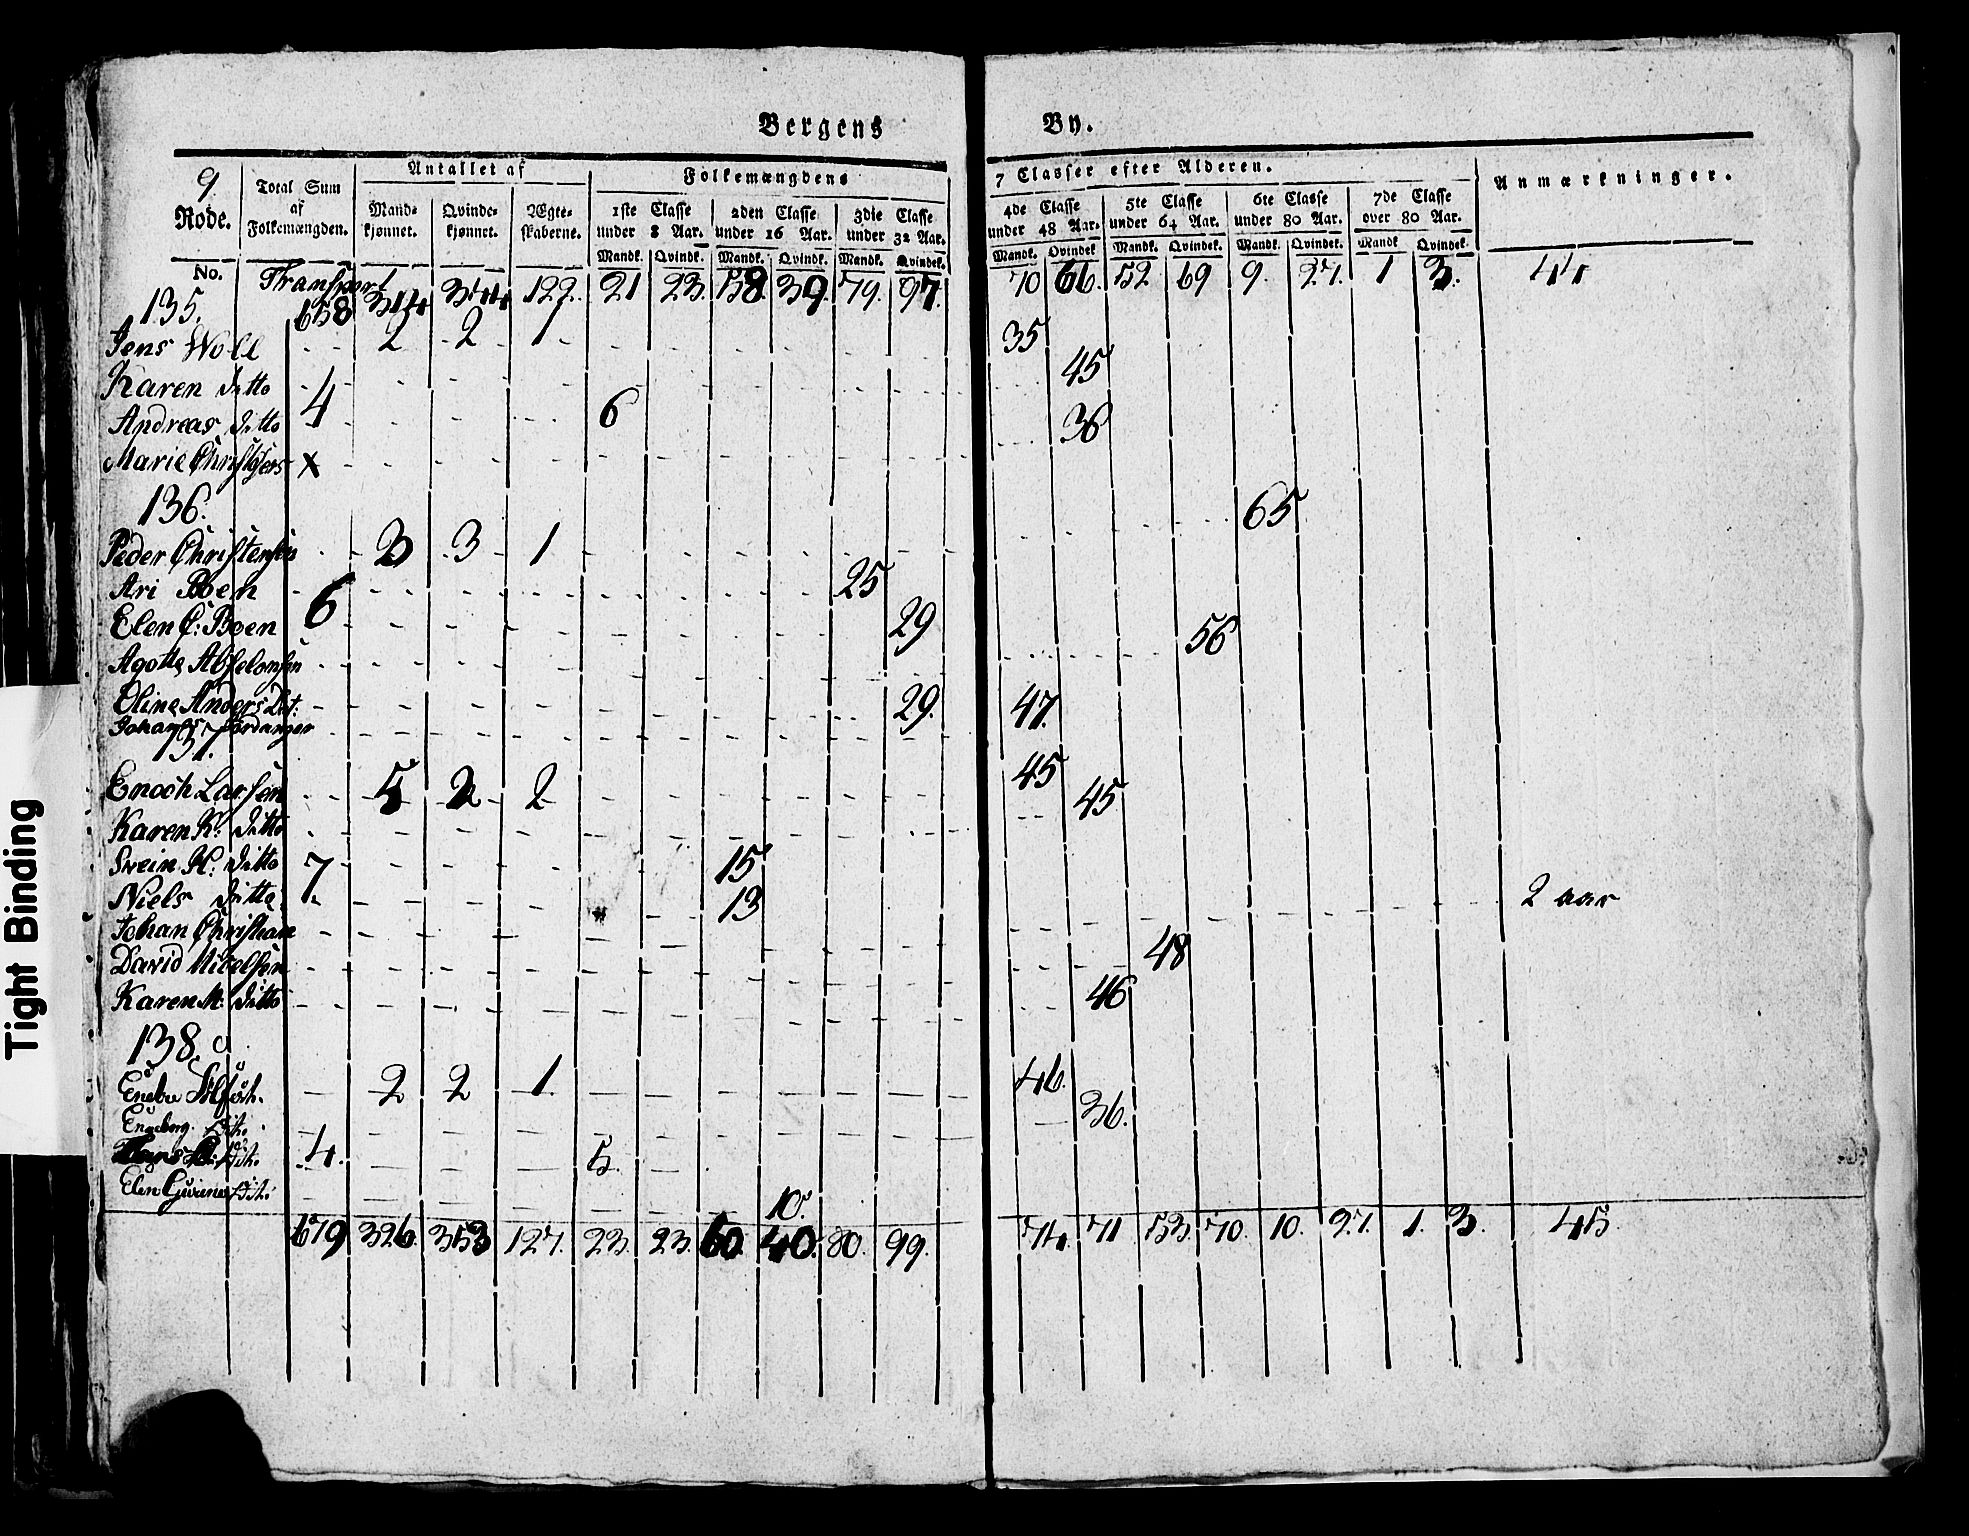 Bergens By.
9. Rode.
Total Sum af Folkemængden.
Antallet af
Mandkjønnet. Qvindekjønnet. Ægteskaberne.
Folkemængdens 7 Classer efter Alderen.
1ste Classe under 8 Aar. 2den Classe under 16 Aar. 3die Classe under 32 Aar. 4de Classe under 48 Aar. 5te Classe under 64 Aar. 6te Classe under 80 Aar. 7de Classe over 80 Aar.
Anmærkninger.
Mandk. Qvindk. Mandk. Qvindk. Mandk. Qvindek. Mandk. Qvindek. Mandk. Qvindek. Mandk. Qvindek. Mandk Qvindek
No. Transport
135. 658 314 344 122. 21 23. 58. 39. 79. 97. 70 66. 52 69 9. 27. 1 3. 44
Jens Woll 2 2 1 35
Karen ditto 4 45
Andreas ditto 6
Marie x 36
136.
Peder Christensen 3 3 1 65
Ari Boen 6 25
Elen C: Boen 29
Agotte Abselonsen 56
Eline Anders Dat: 29.
Johans 47.
137.
Enoch Larsen 5 2 2 45
Karen K: ditto 45
Svein H: ditto 7. 15
Niels ditto 13
Johan Christian 2 aar
David Mikelsen 48
Karen M: ditto 46
138.
2 2 1. 46.
Engeborg dito 36.
4. 5.
Elen dito 10.
679 326. 353 127. 23. 23. 60. 40. 80. 99. 74. 71 53. 70. 10. 27. 1. 3. 45.
Tight Binding